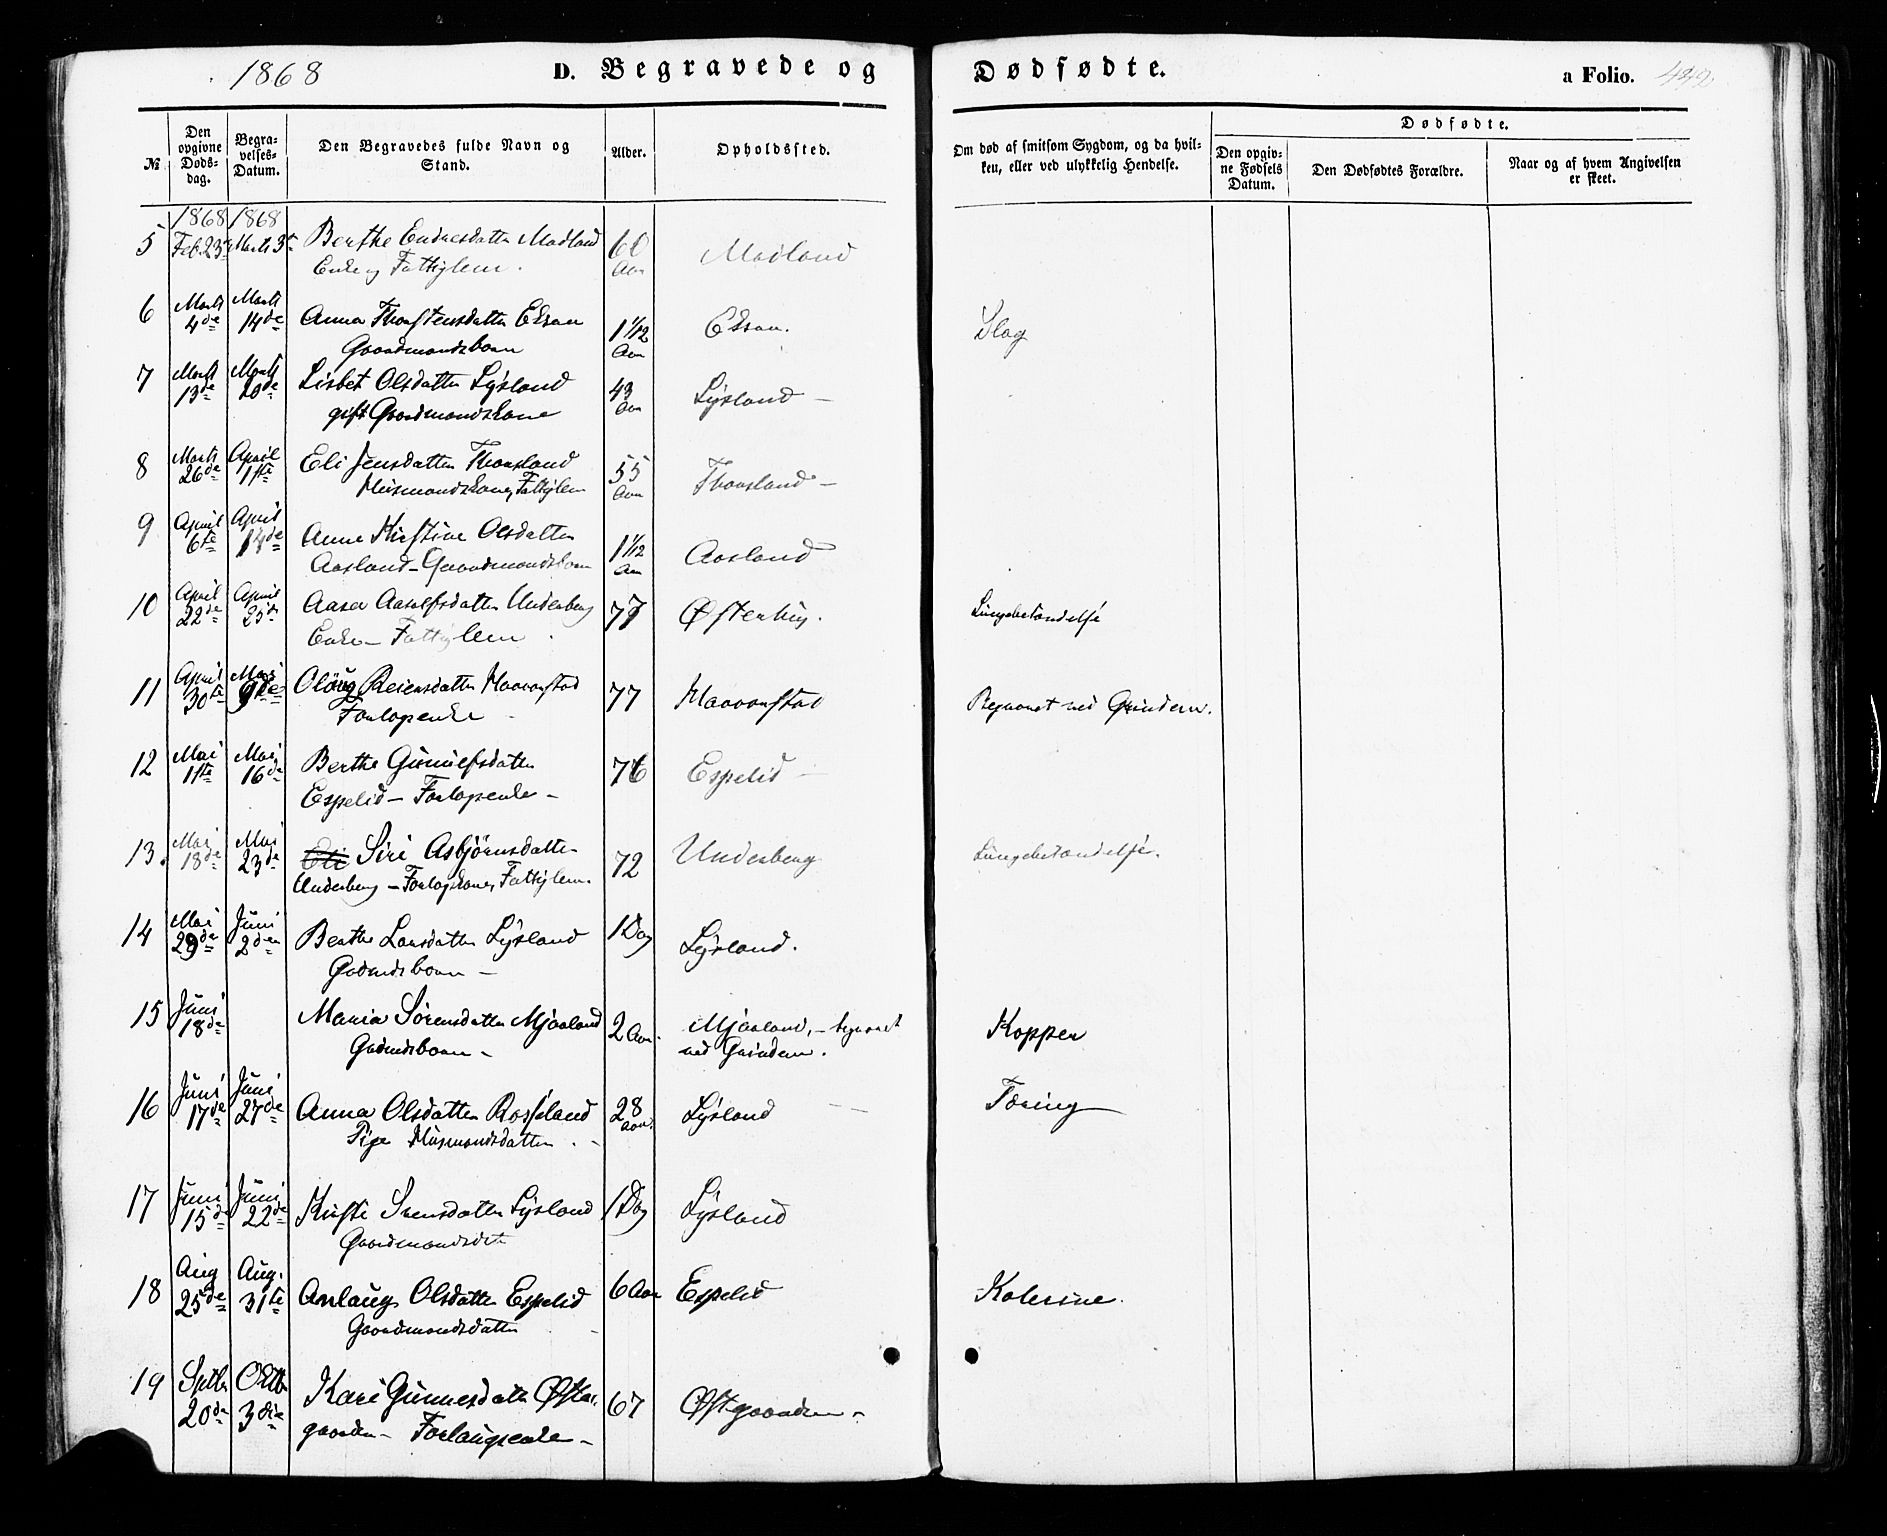 1868 D. Begravede og Dødfødte. a Folio. 449.
№
Den opgivne Døds-dag.
Begra-velses-Datum.
Den Begravedes fulde Navn og Stand.
Alder.
Opholdssted.
Om død af smitsom Sygdom, og da hvil-ken, eller ved ulykkelig Hendelse.
Dødfødte.
Den opgiv-ne Fødsels Datum.
Den Dødfødtes Forældre.
Naar og af hvem Angivelsen er skeet.
1868 1868
5 Feb. 23 Marts 3 Berthe Endresdatter Madland 60 Madland
Enke, Fattiglem. Aar
6 Marts 4de Marts 14de Anna Thorstensdatter Eksaa 1 1/12 Eksaa. Slag
Gaardmandsbarn Aar
7 Marts 13de Marts 20de Lisbet Olsdatter Lysland 43 Lysland —
gift Gaardmandskone Aar
8 Marts 26de April 1ste Eli Jensdatter Thorsland 55 Thorsland —
Husmandskone, Fattiglem Aar
9 April 6te April 14de Anne Kirstine Olsdatter 1 1/12 Aasland
Aasland — Gaardmandsbarn Aar
10 April 22de April 25de Aasa Aasulfsdatter Underberg 77 Østerhus. Lungebetændelse
Enke — Fattiglem
11 April 30te Mai 9de Oloug Reiersdatter Haavorstad 77 Haavorstad Begravet ved Grindem.
Forlopenke
12 Mai 11te Mai 16de Berthe Gunnufsdatter 76 Espelid —
Espelid — Forlopenke —
13. Mai 18de Mai 23de Eli Siri Asbjørnsdatter 72 Underberg Lungebetændelse.
Underberg — Forlopskone, Fattiglem.
14 Mai 29de Juni 2den Berthe Larsdatter Lysland 1 Dag Lysland.
Gadmdsbarn —
15 Juni 18de Maria Sørensdatter Mjaaland 2 Aar. Mjaaland, — begravet Kopper
Gadmdsbarn — ved Grindem.
16 Juni 17de Juni 27de Anna Olsdatter Rosseland 28 Lysland Tæring
Pige Husmandsdatter Aar.
17 Juni 15de Juni 22de Kirsti Svensdatter Lysland 1 Dag Lysland
Gaardmandsdat
18 Aug 25de Aug. 31te Anlaug Olsdatter Espelid 6 Aar Espelid Kolerine.
Gaardmandsdatter
19 Septbr 20de Oktb 3die Kari Gunnesdatter Østre 67 Østgaarden —
gaarden — Forlaugsenke —